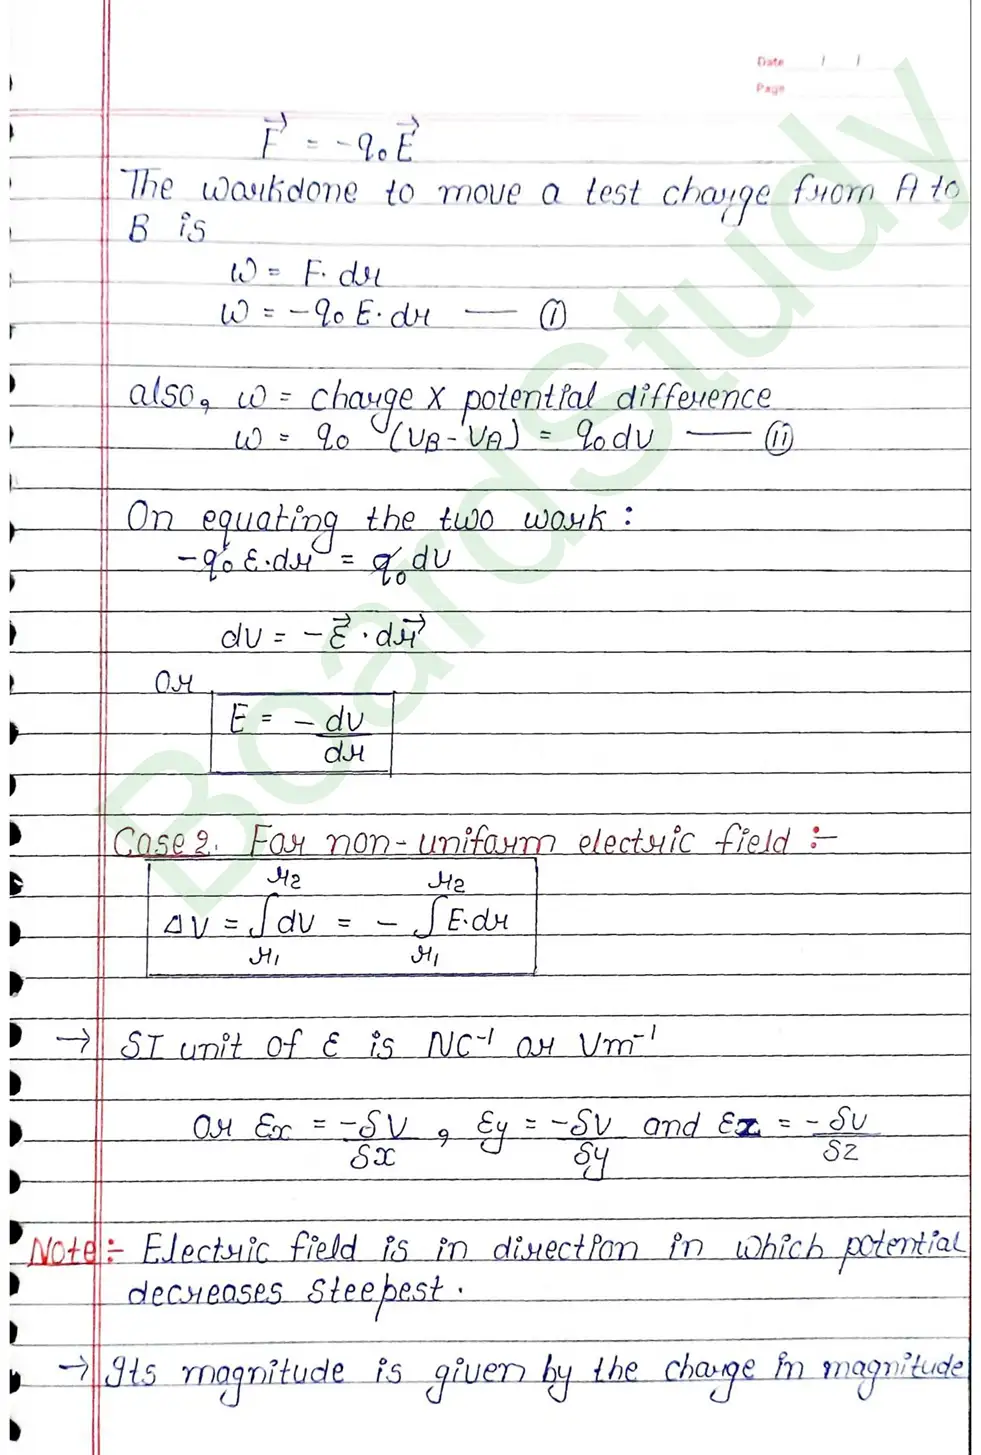 Date / /
Page
F⃗ = -q₀E⃗
The workdone to move a test charge from A to
B is
W = F. dr
W = -q₀ E. dr — (i)
also, W = charge x potential difference
W = q₀ (VB - VA) = q₀dV — (ii)
On equating the two work :
-q₀ E.dr = q₀ dV
dV = -E⃗ . dr⃗
or
E = -dV/dr
Case 2. For non-uniform electric field :-
ΔV = ∫r₁r₂ dV = - ∫r₁r₂ E.dr
→ SI unit of E is NC⁻¹ or Vm⁻¹
or Ex = -δV/δx , Ey = -δV/δy and Ez = -δV/δz
Note :- Electric field is in direction in which potential
decreases steepest.
→ Its magnitude is given by the charge in magnitude
BoardStudy